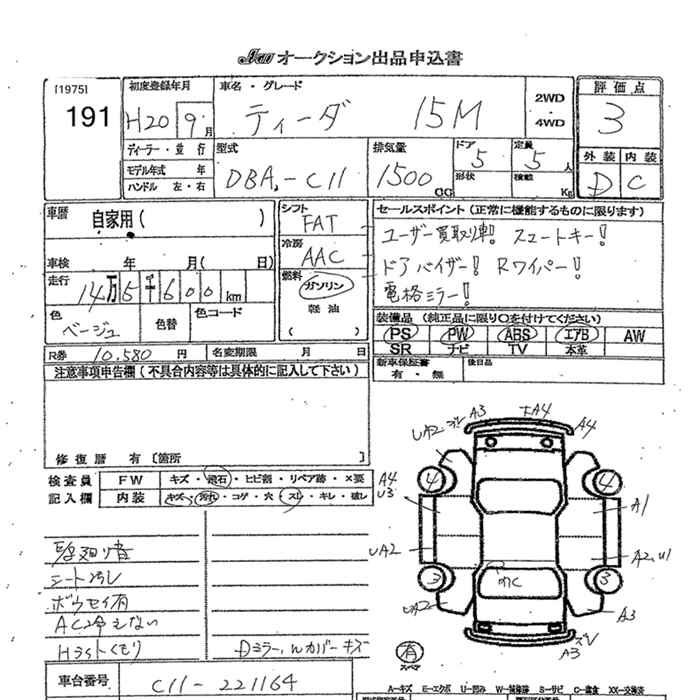 オークション出品申込書
[1975]
191
初度登録年月
H20 9月
車名・グレード
ティーダ 15M
2WD
・
4WD
評価点
3
ディーラー・並行
モデル年式 年
ハンドル 左・右
型式
DBA-C11
排気量
1500 CC
ドア 5
形状
定員 5人
積載 Kg
外装 内装
D C
車歴
自家用( )
車検 年 月( 日)
走行
14万5千600km
色
ベージュ
色替
色コード
シフト
FAT
冷房
AAC
燃料
ガソリン
軽油
( )
セールスポイント(正常に機能するものに限ります)
ユーザー買取り車! スマートキー!
ドアバイザー! Rワイパー!
電格ミラー!
装備品(純正品に限り○を付けてください)
PS PW ABS エアB AW
SR ナビ TV 本革
新車保証書
有・無
後日品
R券 10,580 円 名変期限 月 日
注意事項申告欄(不具合内容等は具体的に記入して下さい)
修復歴 有〔箇所 〕
検査員
記入欄
FW キズ・飛石・ヒビ割・リペア跡・×要
内装 キズ・汚れ・コゲ・穴・スレ・キレ・破レ
シート汚レ
ボウセイ有
ACヒエない
Hライトくもり
Dミラー、ルカバーキズ
車台番号 C11-221164
A3 A4 A4
UA2
4 4
A4
U3
A1
UA2
A2,U1
3 3
UA2
A3
A3
有
スペア
A-キズ E-エクボ U-凹み W-補修跡 S-サビ C-腐食 XX-交換済